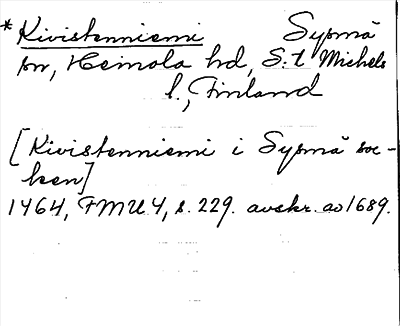 *Kivistenniemi Sysmä
sn, Heinola hd, S:t Michels
l., Finland
[Kivistenniemi i Sysmä soc-
ken]
1464, FMU 4, s. 229. avskr. ao 1689.